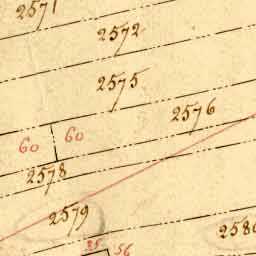 2571
2572
2575
2576
60 60
2578
2579
258
35 56